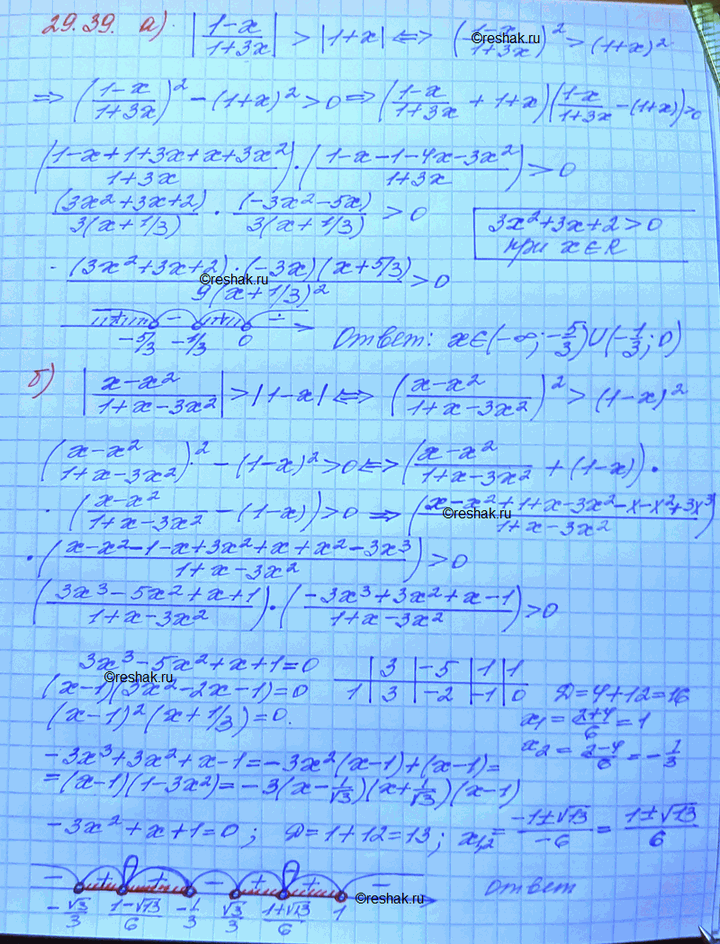 29.39. а) |(1-x)/(1+3x)| > |1+x| ⇔ ((1-x)/(1+3x))² > (1+x)²
⇒ ((1-x)/(1+3x))² - (1+x)² > 0 ⇒ ((1-x)/(1+3x) + 1+x)((1-x)/(1+3x) - (1+x)) > 0
((1-x+1+3x+x+3x²)/(1+3x)) · ((1-x-1-4x-3x²)/(1+3x)) > 0
(3x²+3x+2)/(3(x+1/3)) · (-3x²-5x)/(3(x+1/3)) > 0
3x²+3x+2 > 0
при x∈R
(3x²+3x+2)·(-3x)(x+5/3)/(9(x+1/3)²) > 0
©reshak.ru
+ - + -
-5/3 -1/3 0
Ответ: x∈(-∞; -5/3)∪(-1/3; 0)
б) |(x-x²)/(1+x-3x²)| > |1-x| ⇔ ((x-x²)/(1+x-3x²))² > (1-x)²
((x-x²)/(1+x-3x²))² - (1-x)² > 0 ⇔ ((x-x²)/(1+x-3x²) + (1-x)) ·
· ((x-x²)/(1+x-3x²) - (1-x)) > 0 ⇒ ((x-x²+1+x-3x²-x-x²+3x³)/(1+x-3x²))
©reshak.ru
· ((x-x²-1-x+3x²+x+x²-3x³)/(1+x-3x²)) > 0
((3x³-5x²+x+1)/(1+x-3x²)) · ((-3x³+3x²+x-1)/(1+x-3x²)) > 0
3x³-5x²+x+1=0
| 3 | -5 | 1 | 1
1 | 3 | -2 | -1 | 0
©reshak.ru
(x-1)(3x²-2x-1)=0
Д=4+12=16
(x-1)²(x+1/3)=0.
x₁=(2+4)/6=1
x₂=(2-4)/6=-1/3
-3x³+3x²+x-1=-3x²(x-1)+(x-1)=
=(x-1)(1-3x²)=-3(x-1/√3)(x+1/√3)(x-1)
-3x²+x+1=0; Д=1+12=13; x₁,₂=(-1±√13)/-6=(1±√13)/6
- + + - + + -
-√3/3 (1-√13)/6 -1/3 √3/3 (1+√13)/6 1
©reshak.ru
Ответ